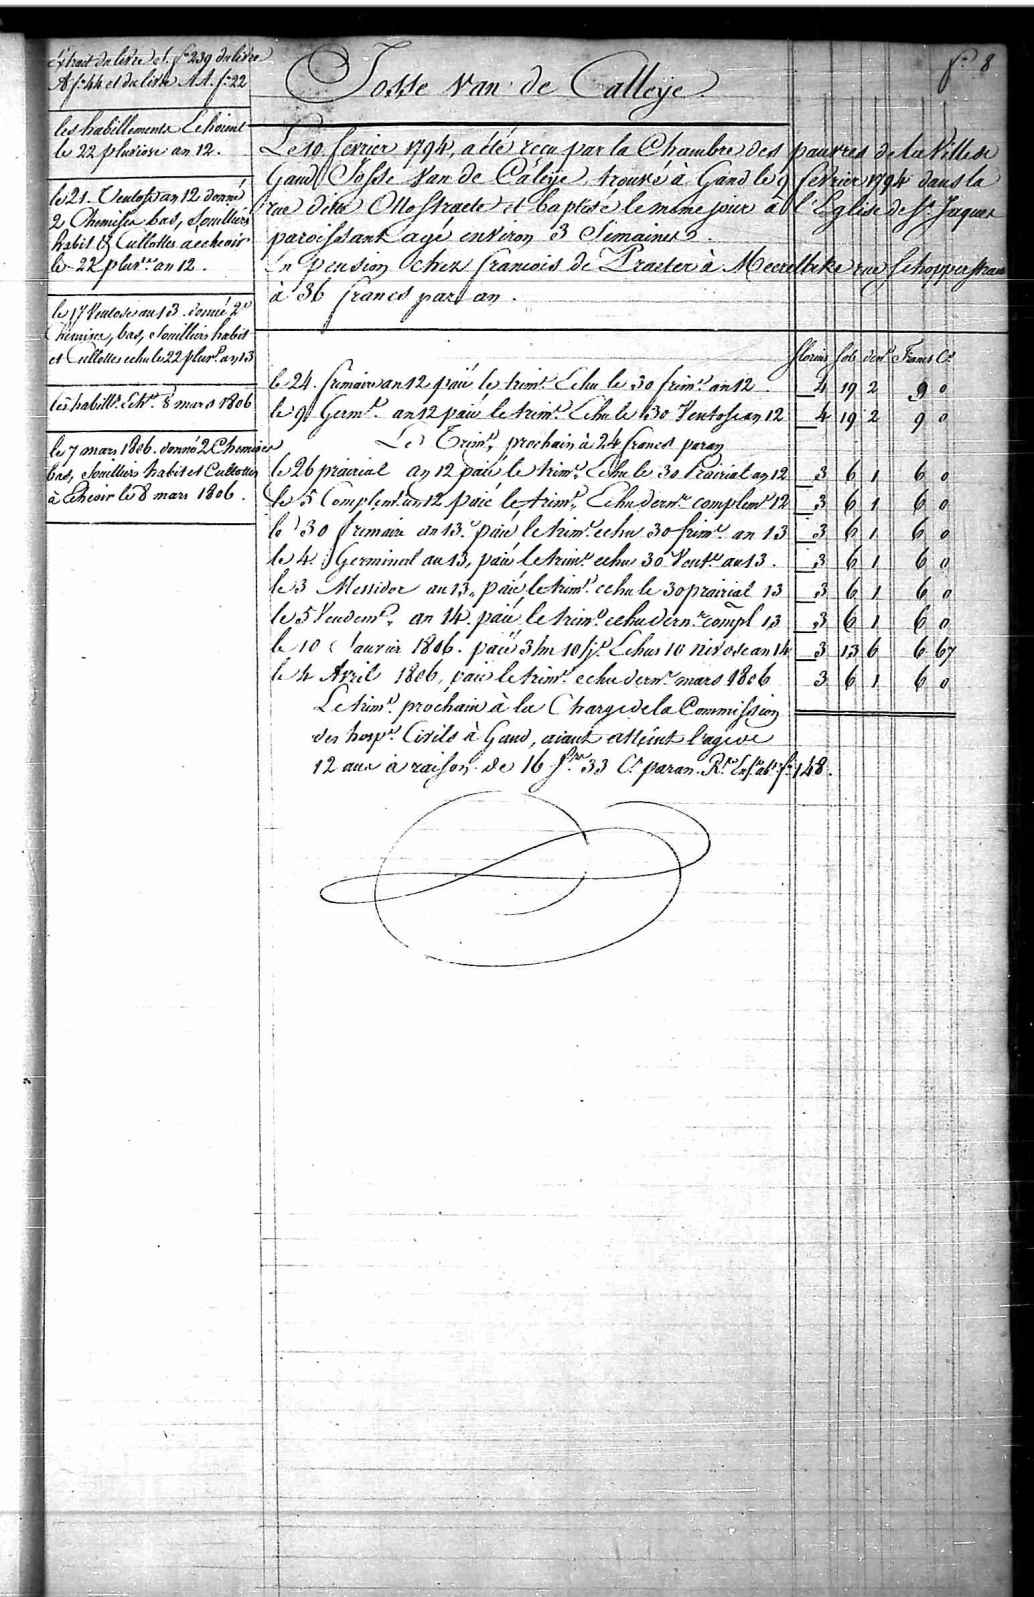 f.o 8
Extrait du livre f.o 239 du livre
A f.o 44 et du livre AA. f.o 22
les habillements Echoient
le 22 pluviose an 12.
le 21. Ventose an 12 donné
2 Chemises bas, Souilliers
habit & Cullottes a echeoir
le 22 pluv.se an 12.
le 17 Ventose an 13. donné 2
Chemises, bas, Souilliers habit
et Cullottes echu le 22 pluv.se an 13
les habill.s Ech.s 8 mars 1806
le 7 mars 1806. donné 2 Chemises
bas, Souilliers habit et Culottes
à Echeoir le 8 mars 1806.
Josse van de Calleye.
Le 10 février 1794, a été recu par la Chambre des pauvres de la Ville de
Gand Josse Van de Caleye, trouvé a Gand le 9 fevrier 1794 dans la
rue dite Ottostraete et baptisé le meme jour à l'Eglise de St. Jaques
paroissant agé environ 3 Semaines.
En pension chez francois de Praeter à Meerelbeke rue Schopperstraat
à 36 francs par an.
florins sols den.s Francs C.s
le 24. frimaire an 12 païé le trim.e Echu le 30 frim.e an 12 4 19 2 9 0
le 9 Germ.l an 12 païé le trim.e Echu le 30 Ventose an 12 4 19 2 9 0
Le Trim.e prochain à 24 francs par an
le 26 prairial an 12 païé le trim.e Echu le 30 Prairial an 12 3 6 1 6 0
le 5 Complem.t an 12 païé le trim.e Echu dern.r complem.t 12 3 6 1 6 0
le 30 frimaire an 13. païé le trim.e echu 30 frim.e an 13 3 6 1 6 0
le 4. Germinal an 13, païé le trim.e echu 30 Vent.e an 13. 3 6 1 6 0
le 3 Messidor an 13, païé le trim.e echu le 30 prairial 13 3 6 1 6 0
le 5 Vendem.e an 14. païé le trim.e echu dern.r compl 13 3 6 1 6 0
le 10 Janvier 1806. païé 3 m 10 j.s Echus 10 nivose an 14 3 13 6 6 67
le 4 Avril 1806, païé le trim.e echu dern.r mars 1806 3 6 1 6 0
Le trim.e prochain à la Charge de la Commission
des hosp.s Civils à Gand, aiant atteint l'age de
12 ans à raison de 16 f.rs 33 C.s par an. f.o 148.